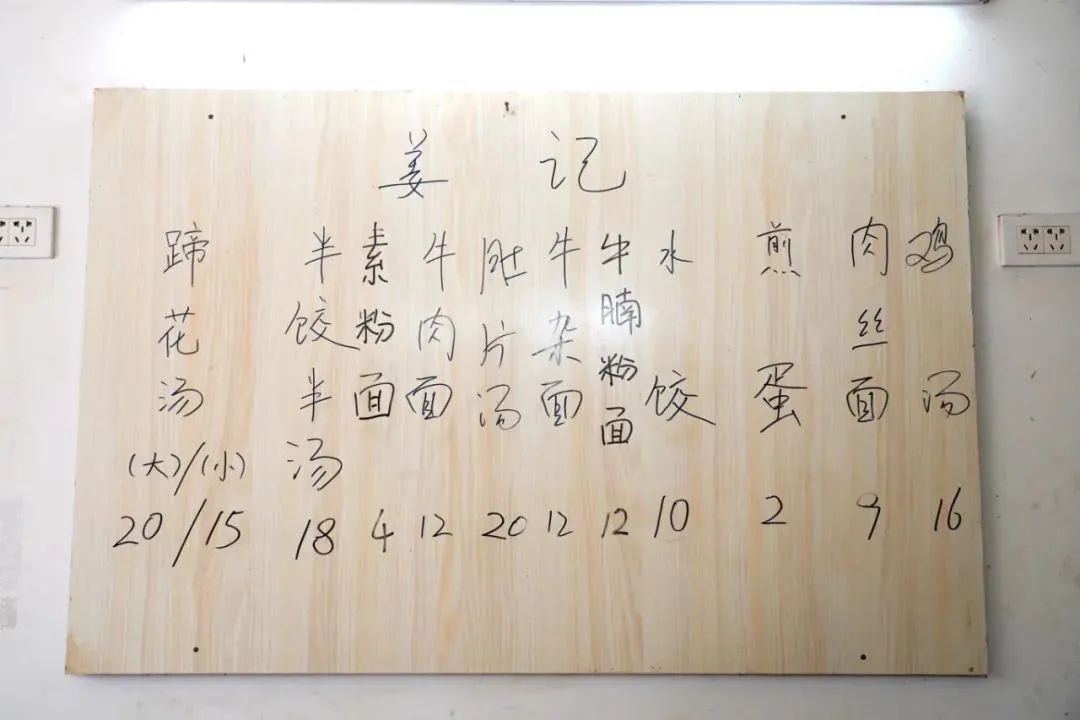 姜记
蹄花汤(大)/(小) 20/15
半饺半汤 18
素粉面 4
牛肉面 12
肚片汤 20
牛杂面 12
牛腩粉面 12
水饺 10
煎蛋 2
肉丝面 9
鸡汤 16